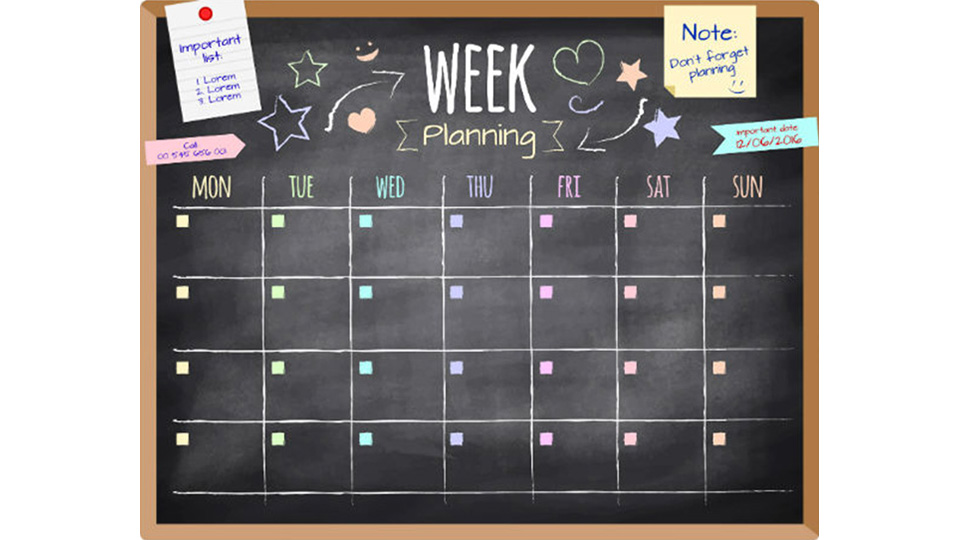 Important
list:
1. Lorem
2. Lorem
3. Lorem
WEEK
Planning
Note:
Don't forget
planning
Call
00 545 656 001
Important date
12/06/2016
MON TUE WED THU FRI SAT SUN